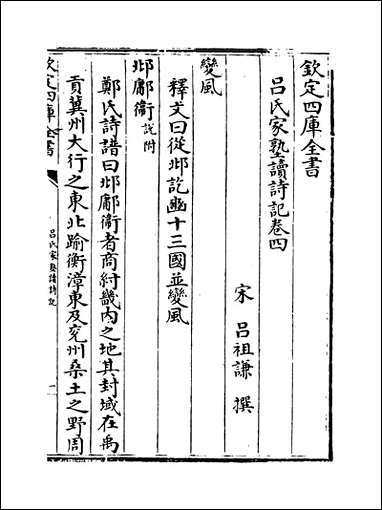 欽定四庫全書
呂氏家塾讀詩記卷四
宋 呂祖謙 撰
變風
釋文曰從邶訖豳十三國並變風
邶鄘衛說附
鄭氏詩譜曰邶鄘衛者商紂畿內之地其封域在禹
貢冀州大行之東北踰衡漳東及兗州桑土之野周
欽定四庫全書
呂氏家塾讀詩記
一